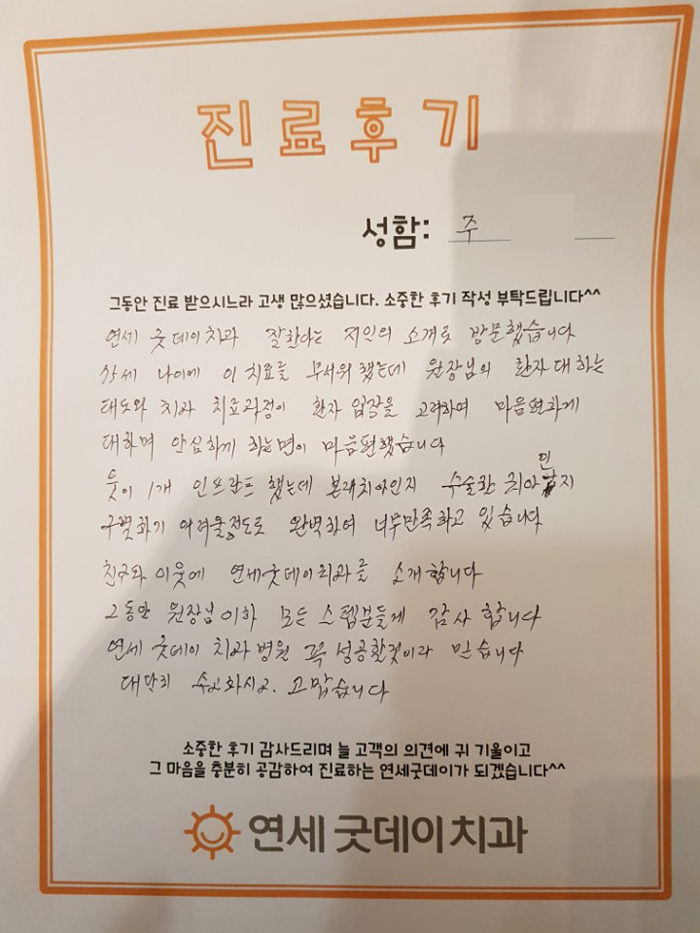 진료후기
성함: 주
그동안 진료 받으시느라 고생 많으셨습니다. 소중한 후기 작성 부탁드립니다^^
연세 굿데이치과 잘한다는 지인의 소개로 방문했습니다
나이에 이 치료를 무서워 했는데 원장님의 환자 대하는
태도와 치과 치료과정이 환자 입장을 고려하며 마음편하게
대하며 안심하게 하는면이 마음편했습니다
1개 인프란트 했는데 본래치아인지 수술한 치아인지
구별하기 어려울정도로 완벽하여 너무만족하고 있습니다
친구와 이웃에 연세굿데이치과를 소개합니다
그동안 원장님이하 모든 스텝분들게 감사 합니다
연세 굿데이 치과병원 꼭 성공할것이라 믿습니다
대단히 고맙습니다
소중한 후기 감사드리며 늘 고객의 의견에 귀 기울이고
그 마음을 충분히 공감하여 진료하는 연세굿데이가 되겠습니다^^
연세 굿데이치과